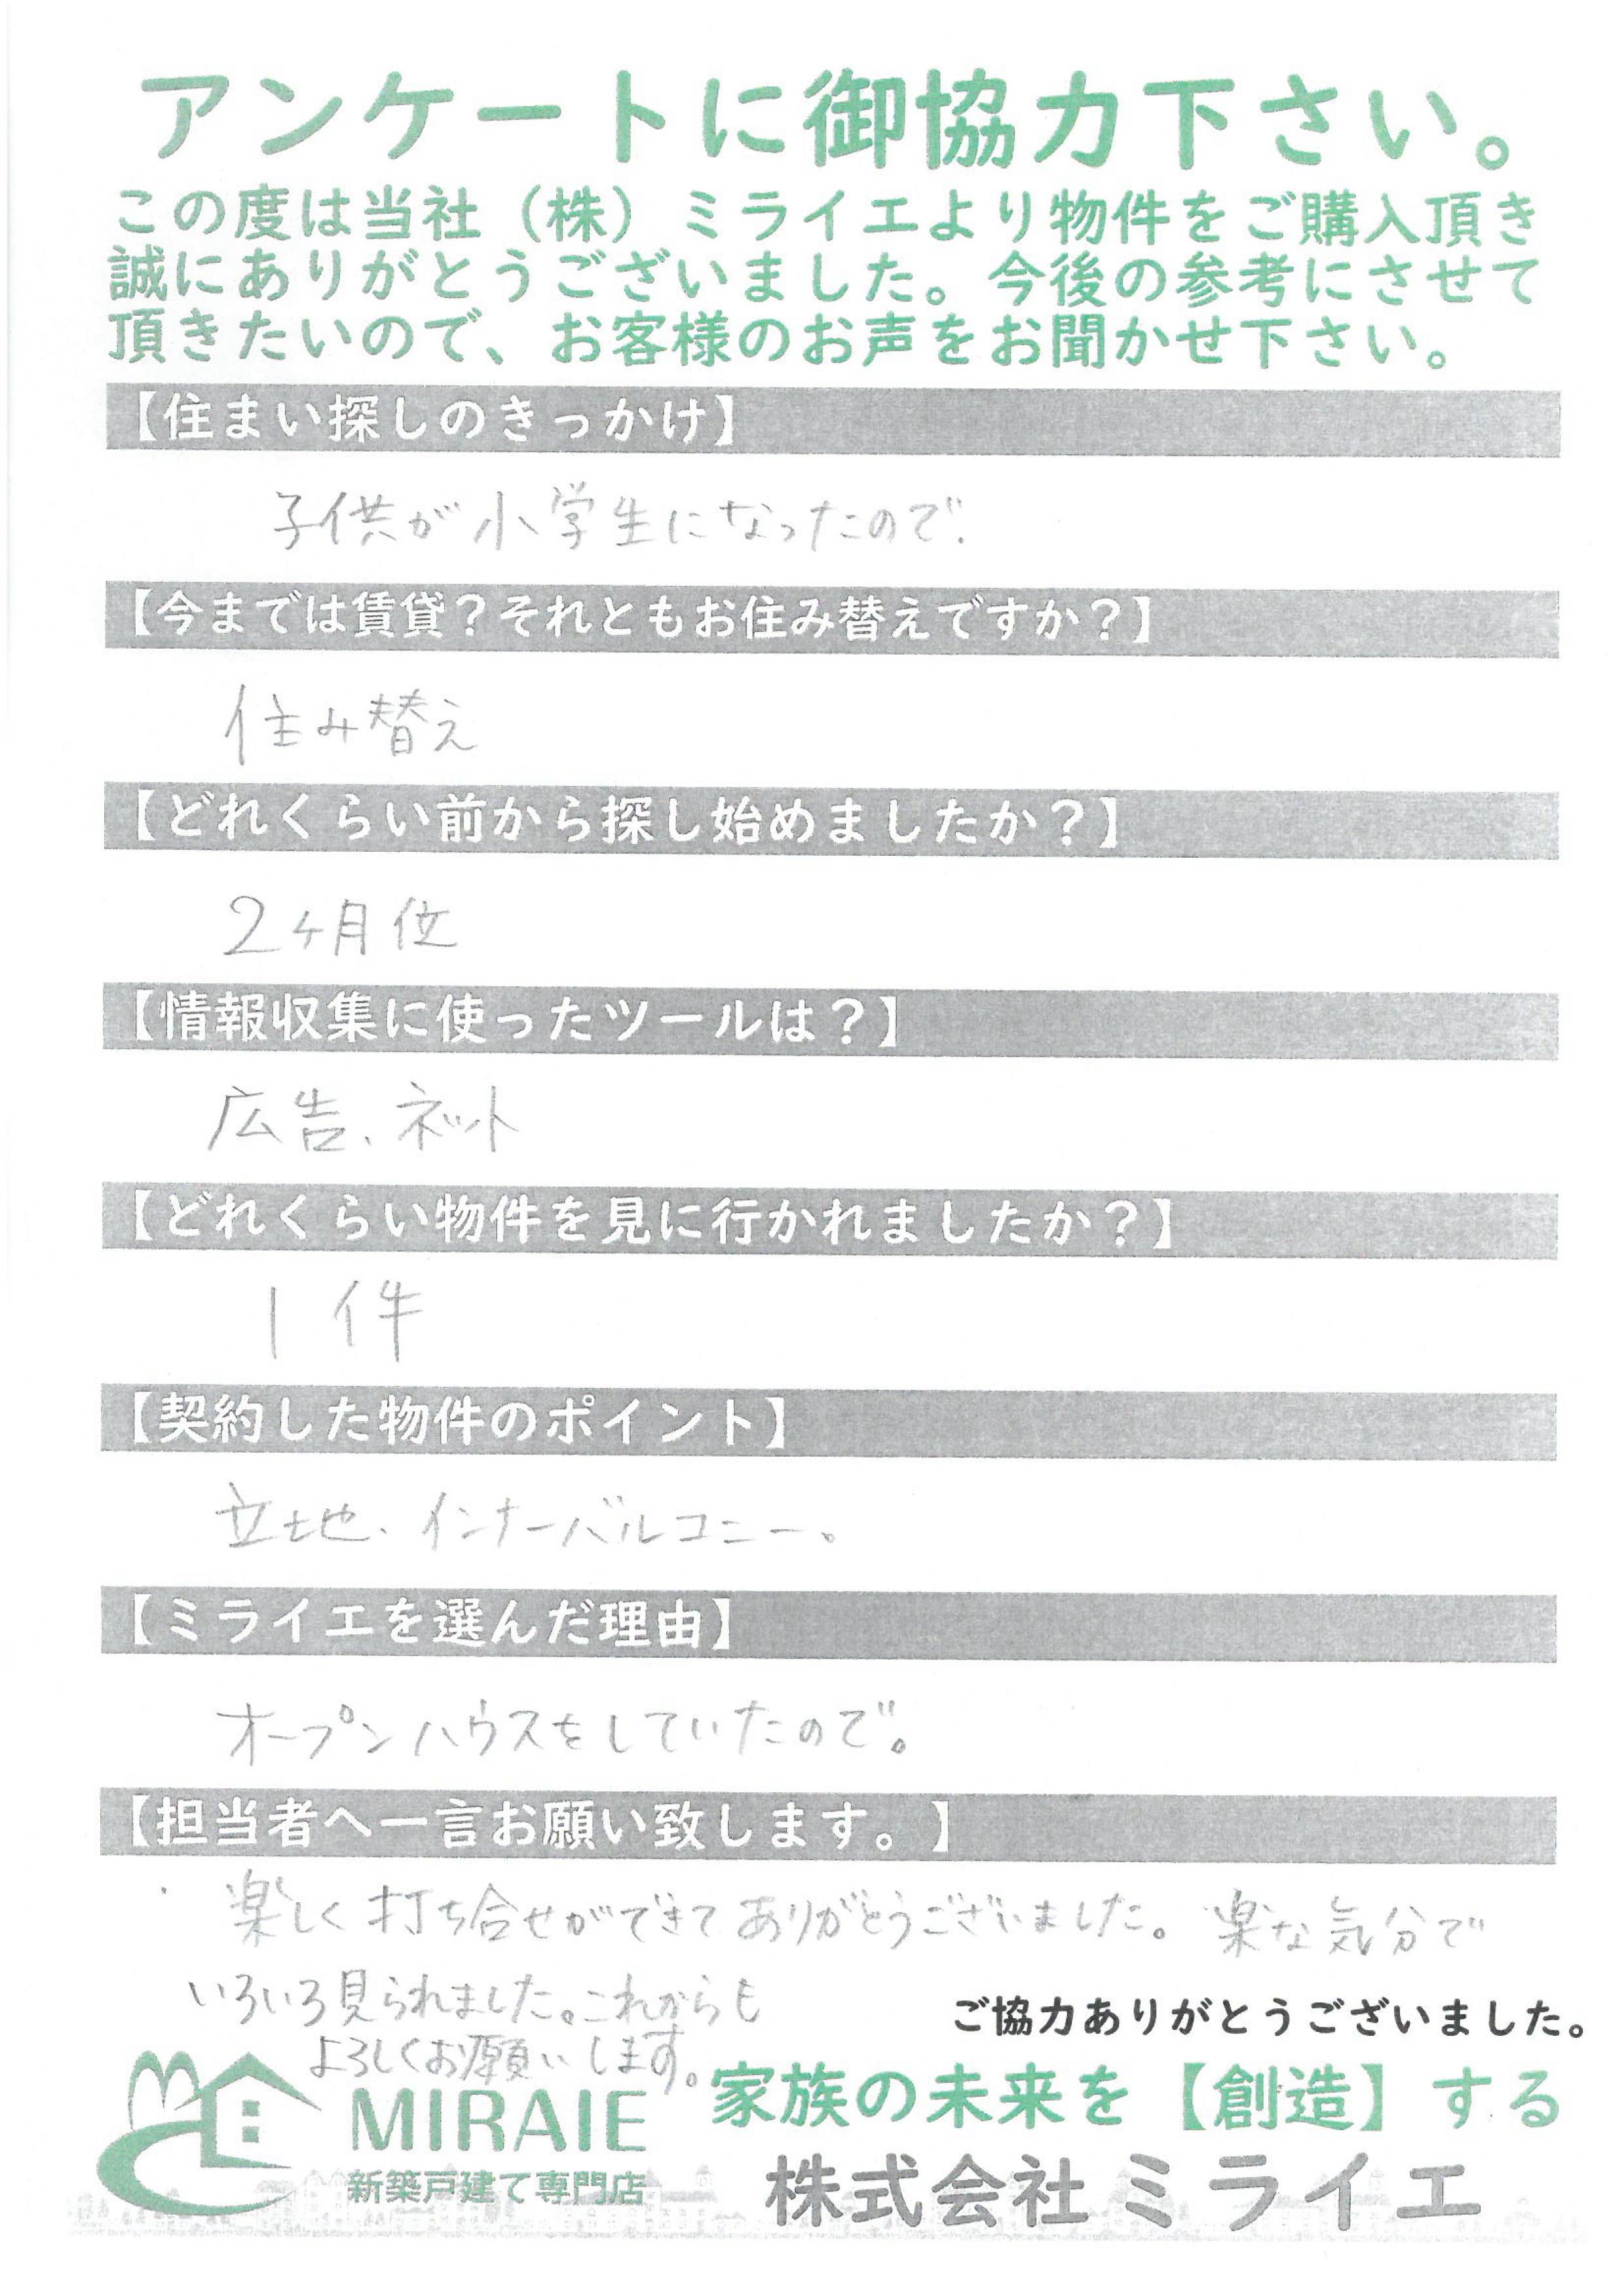 アンケートに御協力下さい。
この度は当社（株）ミライエより物件をご購入頂き
誠にありがとうございました。今後の参考にさせて
頂きたいので、お客様のお声をお聞かせ下さい。
【住まい探しのきっかけ】
子供が小学生になったので.
【今までは賃貸？それともお住み替えですか？】
住み替え
【どれくらい前から探し始めましたか？】
2ヶ月位
【情報収集に使ったツールは？】
広告、ネット
【どれくらい物件を見に行かれましたか？】
1件
【契約した物件のポイント】
立地、インナーバルコニー。
【ミライエを選んだ理由】
オープンハウスをしていたので。
【担当者へ一言お願い致します。】
楽しく打ち合せができてありがとうございました。楽な気分で
いろいろ見られました。これからも
よろしくお願いします。
ご協力ありがとうございました。
MIRAIE
新築戸建て専門店
家族の未来を【創造】する
株式会社ミライエ